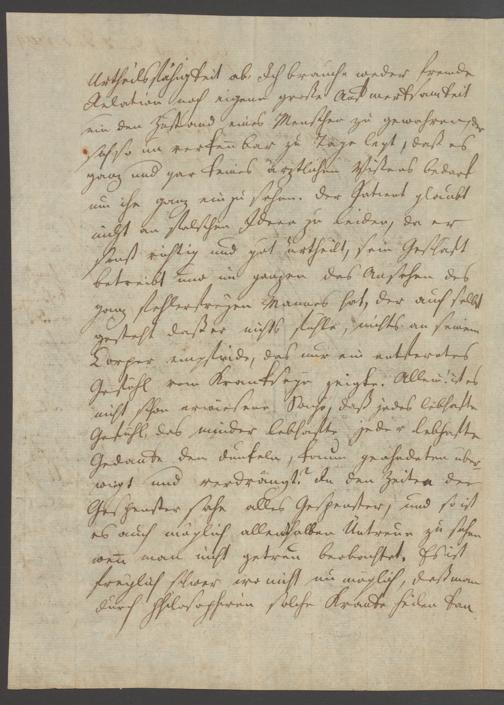 Urtheilsfähigkeit ab. Ich brauche weder fremde
Relation noch eigene große Aufmerksamkeit
um den Zustand eines Menschen zu gewahren, der
sich so unverkenbar zu Tage legt, daß es
ganz und gar keines ärztlichen Wissens bedarf
um ihn ganz einzusehen. Der Patient glaubt
nicht an falschen Ideen zu leiden, da er
sonst richtig und gut urtheilt, sein Geschäft
betreibt und im ganzen das Ansehen des
ganz fehlerfreyen Mannes hat, der auch selbst
gesteht daß er nichts fühle, nichts an seinem
Körper empfinde, das nur ein entferntes
Gefühl vom Krankseyn zeigte. Allein ist es
nicht schon erwiesene Sache, daß jedes lebhafte
Gefühl das minder lebhafte, jeder lebhafte
Gedanke den dunkeln, kaum geahndeten über
wiegt und verdrängt? In den Zeiten der
Gespenster sahe alles Gespenster, und so ist
es auch möglich allenthalben Untreue zu sehen
wenn man nicht getreu beobachtet. Es ist
freylich schwer wo nicht unmöglich, daß man
durch Philosophieren solche Kranke heilen kan